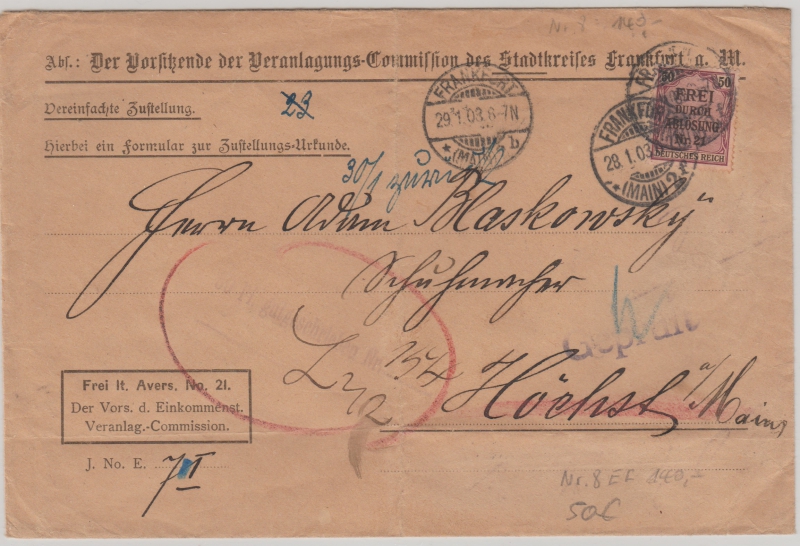 Nr. 8 - 140,-
Abs.: Der Vorsitzende der Veranlagungs-Commission des Stadtkreises Frankfurt a. M.
Vereinfachte Zustellung.
23
Hierbei ein Formular zur Zustellungs-Urkunde.
FRANKFURT
29.1.03.6-7N
* (MAIN) 2 b
FRANKFURT
28.1.03
* (MAIN) 2 *
50 50
FREI
DURCH
ABLÖSUNG
Nr. 21
DEUTSCHES REICH
30/1 zurück
Herrn Adam Maskowsky
Schuhmacher
Geprüft
154
Höchst a/Main
Frei lt. Avers. No. 21.
Der Vors. d. Einkommenst.
Veranlag.-Commission.
J. No. E. 71
Nr. 8 EF 140,-
50€